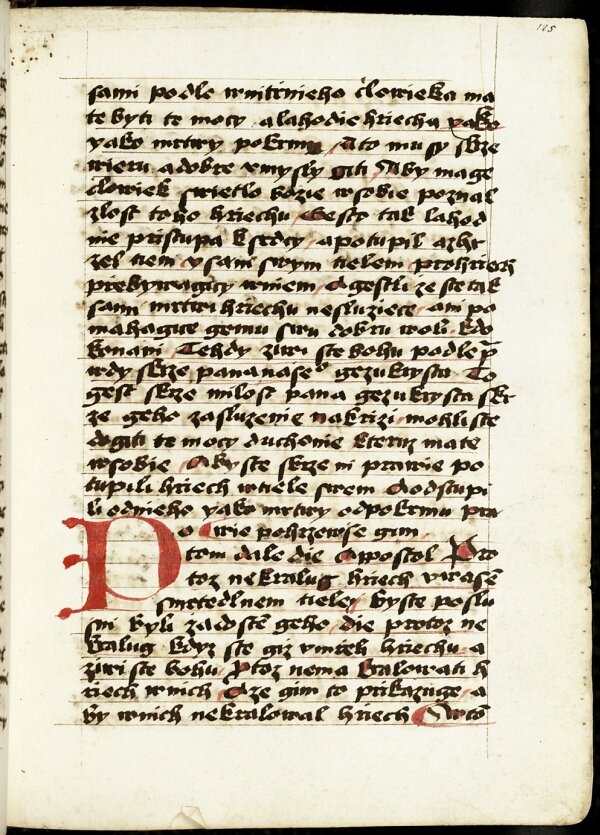 125
sami podle wnitrnieho clowieka ma
te byti te mocy a lahodie hriechu yako
yako mrtwy pokrmu A to mu sy skrze
wieru a dobre vmysly giti Aby mage
clowiek swietlo bozie w sobie poznal
zlost toho hriechu gesto tak lahod
nie pristupa k srdcy a potupil a zhr
zel tiem y sam swym tielem pro hriech
prebywagicy w niem A gestli ze ste tak
sami mrtwi hriechu nesluziece ani po
mahagice gemu swu dobru woli kdo
konani Tehdy ziwi ste bohu podle p
wdy skrze pana naseo gezukrysta To
gest skrze milost pana gezukrysta skr
ze geho zasluzenie na krizi mohli ste
dogiti te mocy duchonie kteruz mate
w sobie Aby ste skrze ni prawie po
tupili hriech w tiele swem A odstupi
li od nieho yako mrtwy od pokrmu pra
wie pohrzewse gim
Potom dale die Appostol Pro
toz nekralug hriech w wasem
smrtedlnem tiele byste poslu
sni byli zadosti geho die protoz ne
kralug kdyz ste giz vmreli hriechu a
ziwi ste bohu Ptoz nema kralowati h
riech w nich A ze gim to prikazuge a
by w nich nekralowal hriech